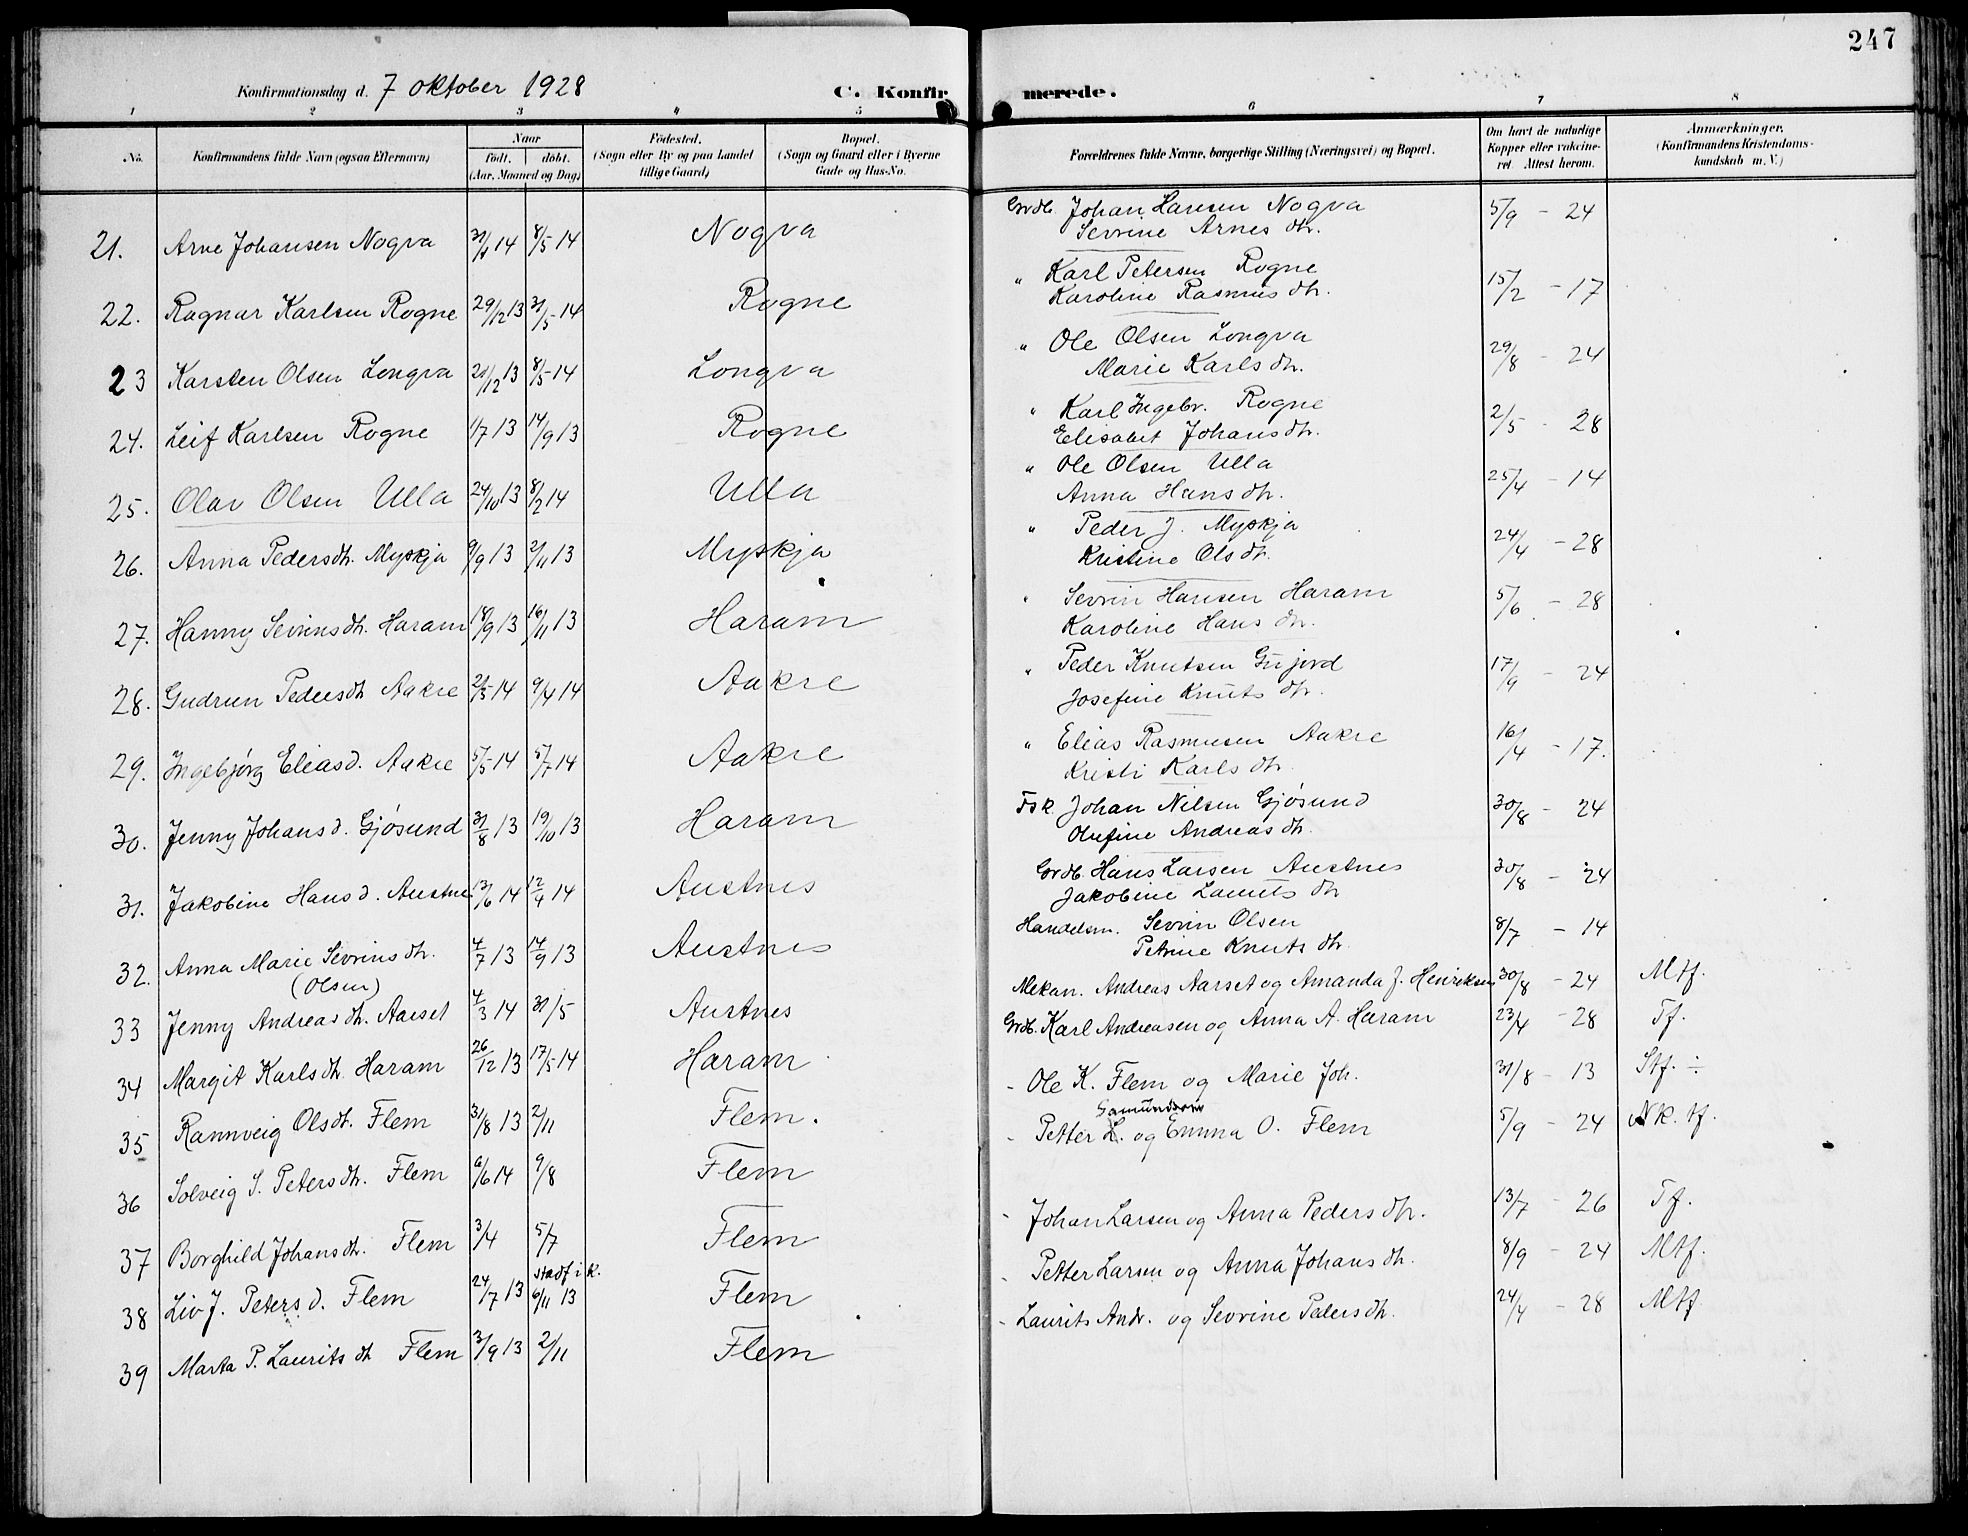 247
Konfirmationsdag d. 7 oktober 1928
C. Konfirmerede.
1 2 3 4 5 6 7 8
No. Konfirmandens fulde Navn (ogsaa Efternavn) Naar født. døbt. (Aar, Maaned og Dag) Fødested. (Sogn eller By og paa Landet tillige Gaard) Bopæl. (Sogn og Gaard eller i Byerne Gade og Hus-No. Forældrenes fulde Navne, borgerlige Stilling (Næringsvei) og Bopæl. Om havt de naturlige Kopper eller vakcineret. Attest herom. Anmærkninger. (Konfirmandens Kristendomskundskab m. V.)
21. Arne Johansen Nogva 14 8/5 14 Nogva Grdb. Johan Larsen Nogva 5/9 - 24
Sevrine Arnes dtr.
22. Ragnar Karlsen Rogne 29/12 13 31/5 14 Rogne " Karl Petersen Rogne 15/2 - 17
Karoline Rasmus dtr.
23 Karsten Olsen Longva 21/12 13 8/5 14 Longva " Ole Olsen Longva 29/8 - 24
Marie Karls dtr.
24. Leif Karlsen Rogne 1/7 13 14/9 13 Rogne " Karl Ingebr. Rogne 2/5 - 28
Elisabet Johans dtr.
25. Olav Olsen Ulla 24/10 13 8/2 14 Ulla " Ole Olsen Ulla 25/4 - 14
Anna Hans dtr.
26. Anna Pedersdtr. Myskja 9/9 13 2/11 13 Myskja " Peder J. Myskja 24/4 - 28
Kristine Ols dtr.
27. Hanny Sevrinsdtr. Haram 18/9 13 16/11 13 Haram " Sevrin Hansen Haram 5/6 - 28
Karoline Hans dtr.
28. Gudrun Pedersdtr Aakre 14 9/4 14 Aakre " Peder Knutsen Gujord 17/9 - 24
Josefine Knuts dtr.
29. Ingebjørg Eliasd. Aakre 5/5 14 5/7 14 Aakre " Elias Rasmusen Aakre 16/4 - 17.
Kristi Karls dtr.
30. Jenny Johans d. Gjøsund 31/8 13 19/10 13 Haram Fsk. Johan Nilsen Gjøsund 30/8 - 24
Olufine Andreas dtr.
31. Jakobine Hans d. Austnes 14 12/4 14 Austnes Grdb. Hans Larsen Austnes 30/8 - 24
Jakobine Laurits dtr
32. Anna Marie Sevrins dtr. 4/7 13 14/9 13 Austnes Handelsm. Sevrin Olsen 8/7 - 14
(Olsen) Petrine Knuts dtr.
33 Jenny Andreas dtr. Aarset 4/3 14 31/5 Austnes Mekan. Andreas Aarset og Amanda J. Henriksen 30/8 - 24 Mtf.
34 Margit Karls dtr. Haram 26/12 13 17/5 14 Haram Grdb. Karl Andreasen og Anna A. Haram 23/4 - 28 Tf.
35 Rannveig Olsdt. Flem 31/8 13 2/11 Flem. - Ole K. Flem og Marie Joh. 31/8 - 13 Stf. ÷
36 Solveig S. Petersdtr. Flem 6/6 14 9/8 Flem - Petter L. og Emma O. Flem 5/9 - 24 Nk. tf.
37 Borghild Johansdtr. Flem 3/4 5/7 Flem - Johan Larsen og Anna Peders dtr. 13/7 - 26 Tf.
38 Liv J. Peters d. Flem 24/7 13 stadf i k. 6/11 13 Flem - Petter Larsen og Anna Johans dtr. 8/9 - 24 Mtf.
39 Marta P. Laurits dtr Flem 3/9 13 2/11 Flem - Laurits Andr. og Sevrine Pedersdtr. 24/4 - 28 Mtf.